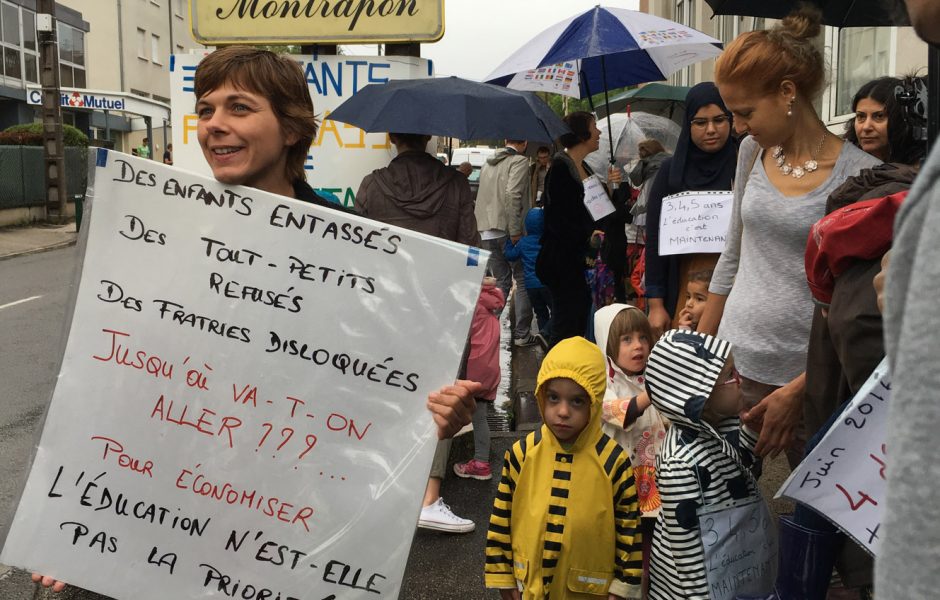 Montrapon
Crédit Mutuel
ENFANTS
DES ENFANTS ENTASSÉS
DES TOUT-PETITS
REFUSÉS
DES FRATRIES DISLOQUÉES
JUSQU'OÙ VA-T-ON
ALLER ???....
POUR ÉCONOMISER
L'ÉDUCATION N'EST-ELLE
PAS LA
3,4,5 ans
L'éducation
c'est
MAINTENANT
3,4,5
L'éducation
MAINTENANT
Juin 201
4